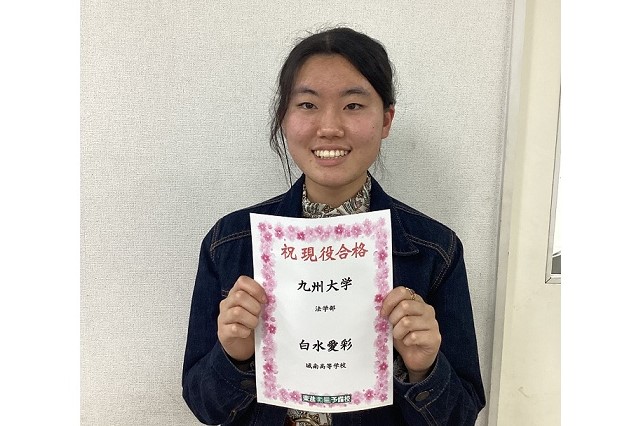 祝 現役合格
九州大学
法学部
白水愛彩
城南高等学校
東進衛星予備校